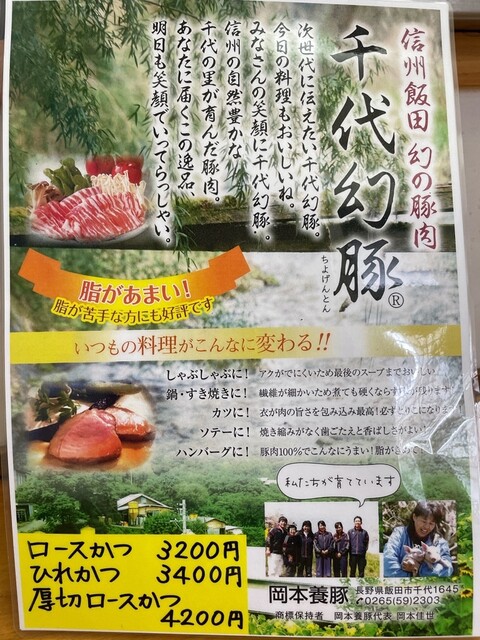 信州飯田 幻の豚肉
千代幻豚®
ちよげんとん
次世代に伝えたい千代幻豚。
今日の料理もおいしいね。
みなさんの笑顔に千代幻豚。
信州の自然豊かな
千代の里が育んだ豚肉。
あなたに届くこの逸品、
明日も笑顔でいってらっしゃい。
脂があまい!
脂が苦手な方にも好評です
いつもの料理がこんなに変わる!!
しゃぶしゃぶに! アクがでにくいため最後のスープまでおいしい
鍋・すき焼きに! 繊維が細かいため煮ても硬くなら
カツに! 衣が肉の旨さを包み込み最高!必ずとりこになりま
ソテーに! 焼き縮みがなく歯ごたえと香ばしさがよい!
ハンバーグに! 豚肉100%でこんなにうまい!脂が
私たちが育てています
ロースかつ 3200円
ひれかつ 3400円
厚切ロースかつ
4200円
岡本養豚
長野県飯田市千代1645
0265(59)2303
商標保持者 岡本養豚代表 岡本佳世